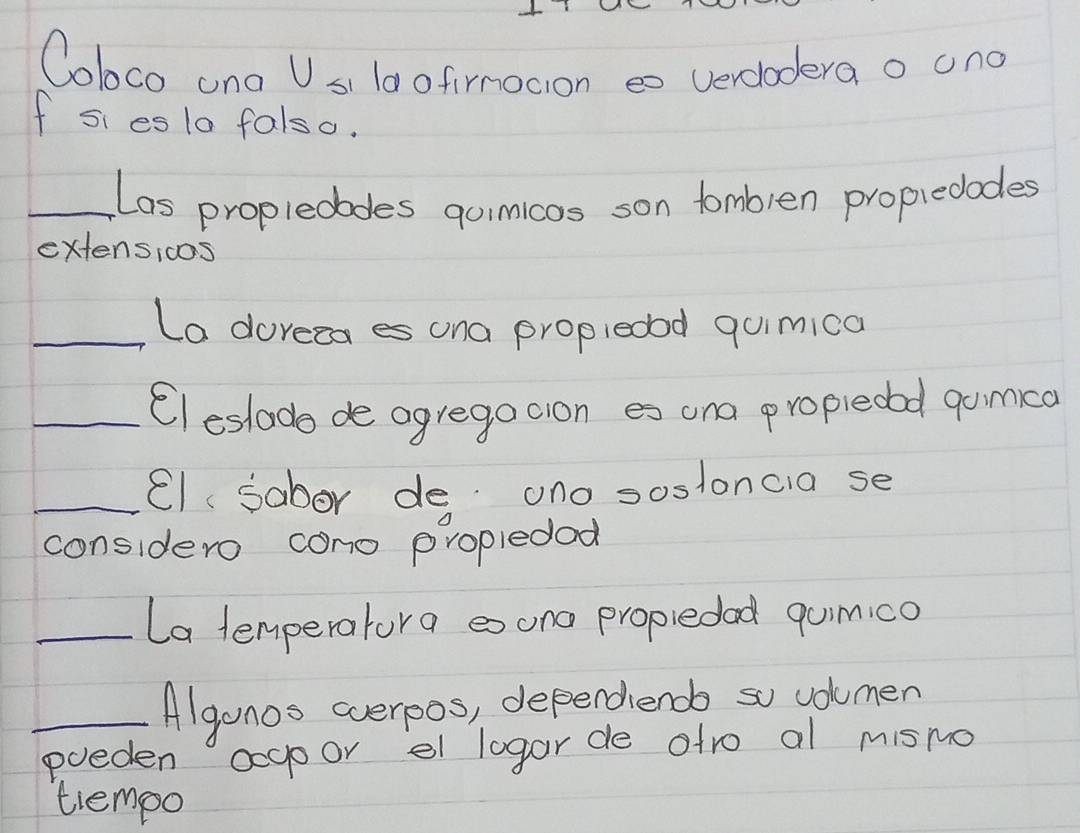 Coloca una V si la afirmacion es verdadera o una
f si es la falsa.
____Las propiedades quimicas son tambien propiedades
extensicas
____La dureza es una propiedad quimica
____El estado de agregacion es una propiedad quimica
____El sabor de una sustancia se
considera como propiedad
____La temperatura es una propiedad quimica
____Algunos cuerpos, dependiendo su volumen
pueden ocupar el lugar de otro al mismo
tiempo